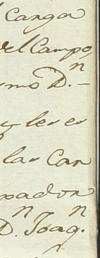 Canga
del Campo,
mo D.n
y les es
las Can
nador
D.n Joaq.n